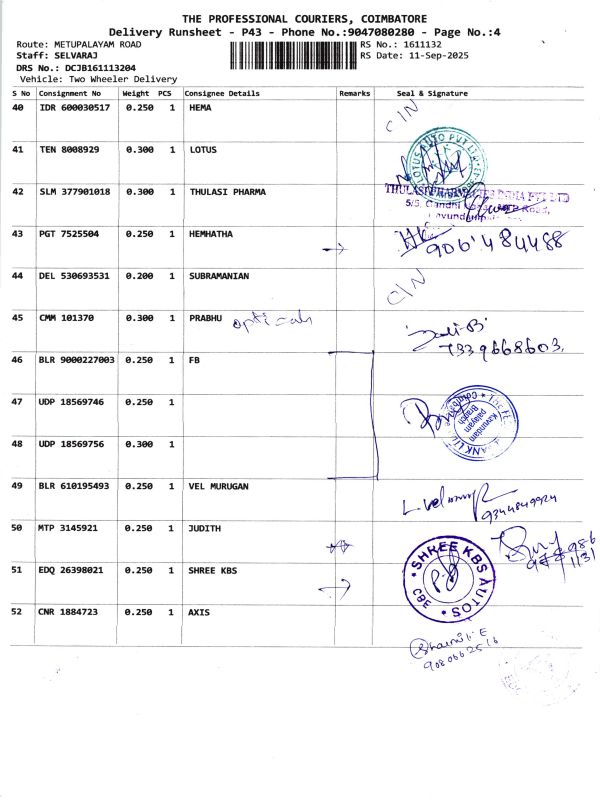 THE PROFESSIONAL COURIERS, COIMBATORE
Delivery Runsheet - P43 - Phone No.:9047080280 - Page No.:4
Route: METUPALAYAM ROAD RS No.: 1611132
Staff: SELVARAJ RS Date: 11-Sep-2025
DRS No.: DCJB161113204
Vehicle: Two Wheeler Delivery
S No Consignment No Weight PCS Consignee Details Remarks Seal & Signature
40 IDR 600030517 0.250 1 HEMA C/N
41 TEN 8008929 0.300 1 LOTUS LOTUS AUTO PVT LTD
42 SLM 377901018 0.300 1 THULASI PHARMA
5/5, Gandhi Road,
43 PGT 7525504 0.250 1 HEMHATHA
44 DEL 530693531 0.200 1 SUBRAMANIAN C/N
45 CMM 101370 0.300 1 PRABHU
7339668603.
46 BLR 9000227003 0.250 1 FB
47 UDP 18569746 0.250 1
Kavundam
palayam
Branch
48 UDP 18569756 0.300 1
49 BLR 610195493 0.250 1 VEL MURUGAN
9344849924
50 MTP 3145921 0.250 1 JUDITH
51 EDQ 26398021 0.250 1 SHREE KBS SHREE KBS AUTOS CBE
52 CNR 1884723 0.250 1 AXIS
9080662516